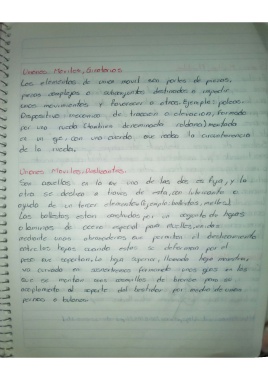 Uniones Moviles, Giratorios.
Los elementos de union movil son partes de piezas,
piezas complejas o
unos movimientos y favorecer a otros. Ejemplo: poleas.
Dispositivo mecanico de traccion o elevacion, formado
por una rueda (tambien denominada roldana) montada
en un eje, con una que rodea la circunferencia
de la rueda.
Uniones Moviles, Deslizantes.
Son aquellos en la que una de las dos es fija, y la
otra se desliza a traves de esta, con lubricante o
ayuda de un tercer elemento (Ejemplo, ballestas,
Las ballestas estan por un conjunto de hojas
o laminas de acero especial para muelles, unidas
mediante unas abrazaderas que permiten el deslizamiento
entre las hojas cuando estas se deforman por el
peso que soportan. La hoja superior, llamada hoja maestra,
va curvada en formando unos ojos en los
que se montan unos casquillos de bronce para su
acoplamiento al soporte del bastidor por medio de unos
pernos o bulones.